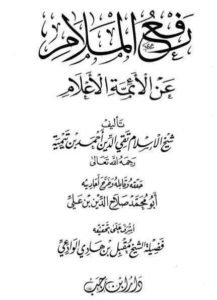 رفع الملام
عن الأئمة الأعلام
تأليف
شيخ الإسلام تقي الدين أحمد بن تيمية
رحمه الله تعالى
حققه وقابله وخرج أحاديثه
أبو محمد صلاح الدين بن علي
أشرف على تحقيقه
فضيلة الشيخ مقبل بن هادي الوادعي
دار ابن رجب